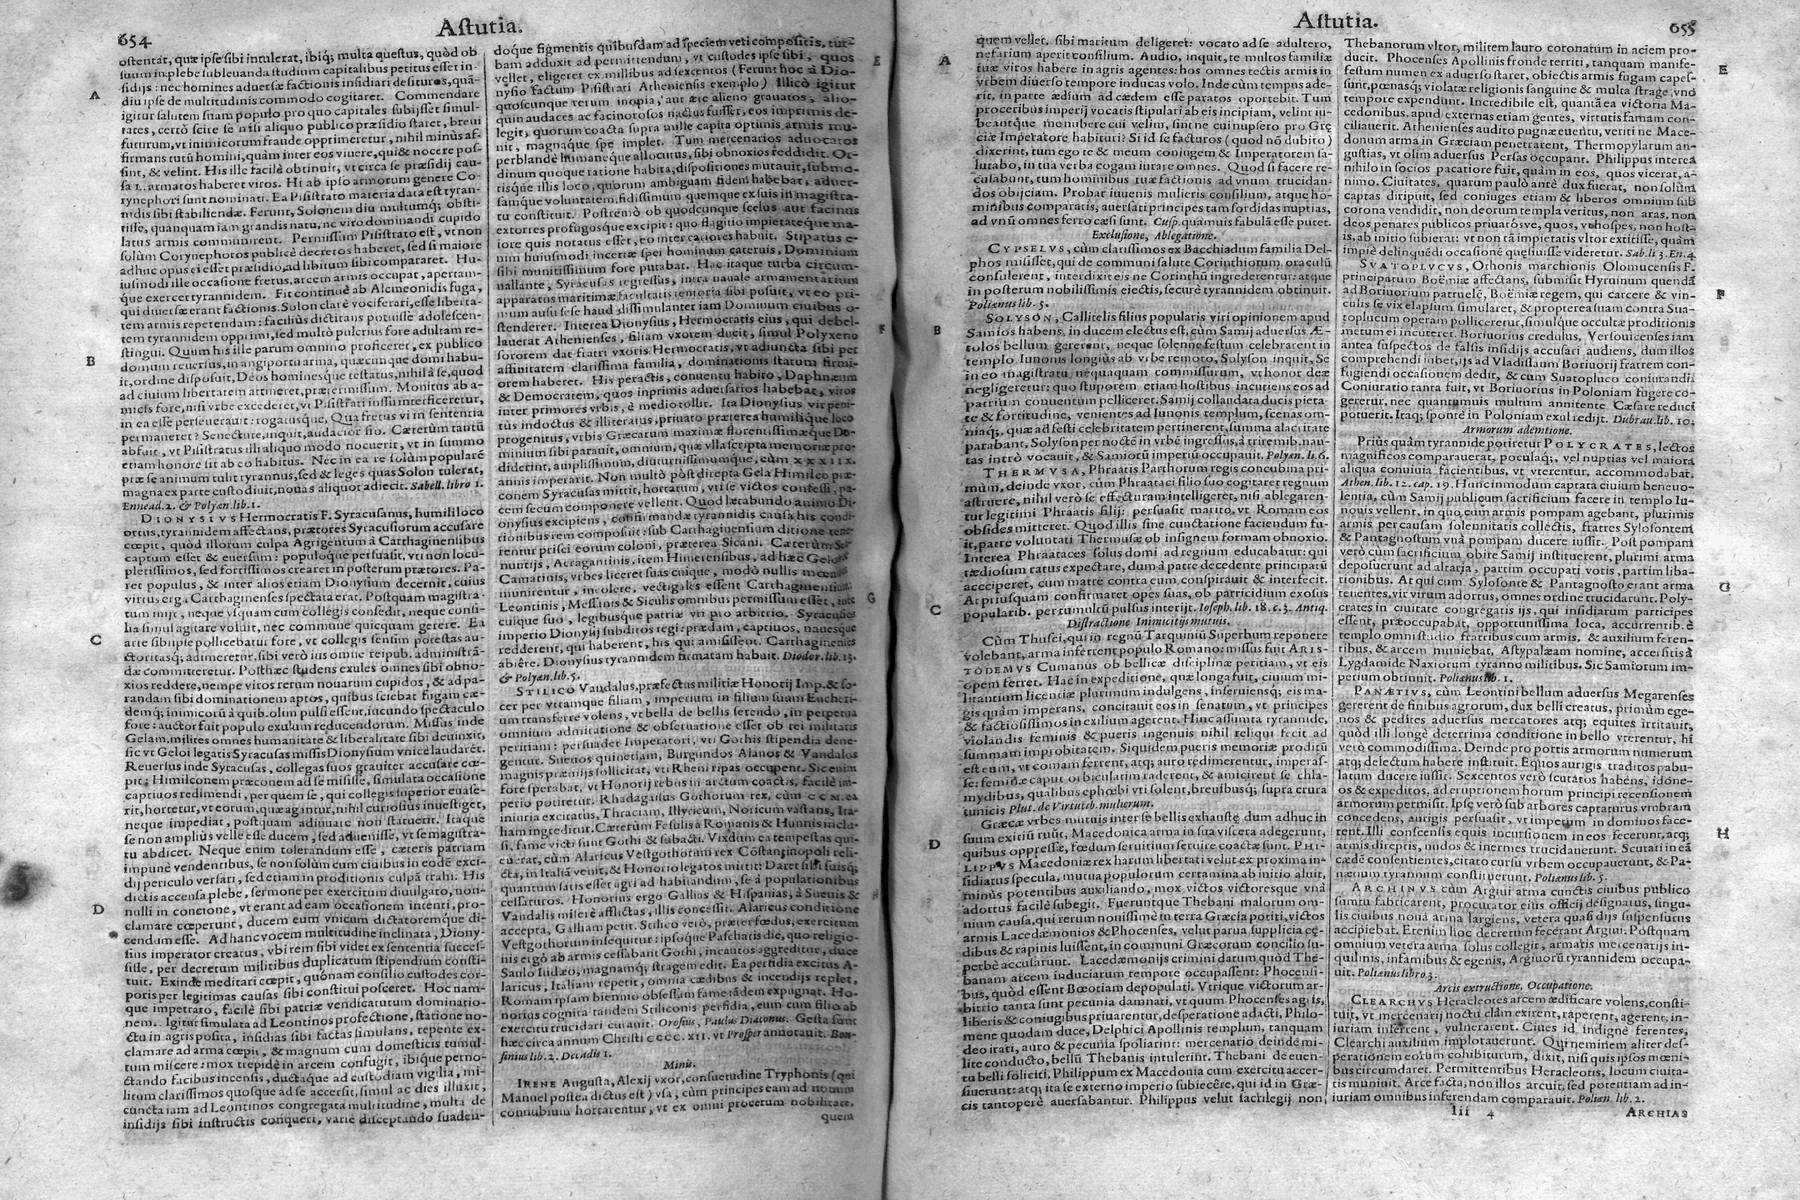 654
Aſtutia.
oſtentat, quæ ipſe ſibi intulerat, ibiq; multa queſtus, quòd ob
ſuum in plebe ſubleuanda ſtudium capitalibus petitus eſſet in-
ſidijs: nec homines aduerſæ factionis inſidiari deſituros, quā-
diu ipſe de multitudinis commodo cogitaret. Commendare
igitur ſalutem ſuam populo pro quo capitales ſubijſſet ſimul-
tates, certò ſcire ſe niſi aliquo publico præſidio ſtaret, breui
futurum, vt inimicorum fraude opprimeretur, nihil minùs af-
firmans tutū homini, quàm inter eos viuere, qui & nocere poſ-
ſint, & velint. His ille facilè obtinuit, vt circa ſe præſidij cau-
ſa armatos haberet viros. Hi ab ipſo armorum genere Co-
rynephori ſunt nominati. Ea Piſiſtrato materia data eſt tyran-
nidis ſibi ſtabiliendæ. Ferunt, Solonem diu multumq; obſti-
tiſſe, quanquam iam grandis natu, ne vitò dominandi cupido
latus armis communirent. Permiſſum Piſiſtrato eſt, vt non
ſolùm Corynephoros publicè decretos haberet, ſed ſi maiore
adhuc opus ei eſſet præſidio, ad libitum ſibi compararet. Hu-
iuſmodi ille occaſione fretus, arcem armis occupat, apertam-
que exercet tyrannidem. Fit continuè ab Alcmeonidis fuga,
qui diuerſæ erant factionis. Solon clarè vociferari, eſſe liberta-
tem armis repetendam: faciliùs dictitans potuiſſe adoleſcen-
tem tyrannidem opprimi, ſed multò pulcrius fore adultam re-
ſtingui. Quum his ille parum omnino proficeret, ex publico
domum reuerſus, in angiportu arma, quæcunque domi habu-
it, ordine diſpoſuit, Deos hominesque teſtatus, nihil à ſe, quod
ad ciuium libertatem attineret, prætermiſſum. Monitus ab a-
micis fore, niſi vrbe excederet, vt Piſiſtrati iuſſu interficeretur,
in ea eſſe perſeuerauit: rogatusque, Qua fretus vi in ſententia
permaneret? Senectute, inquit, audacior fio. Cæterùm tantū
abfuit, vt Piſiſtratus illi aliquo modo nocuerit, vt in ſummo
etiam honore ſit ab eo habitus. Nec in ea re ſolùm popularē
præ ſe animum tulit tyrannus, ſed & leges quas Solon tulerat,
magna ex parte cuſtodiuit, nouas aliquot adiecit. Sabell. libro 1.
Ennead. 2. & Polyæn. lib. 1.
DIONYSIVS Hermocratis F. Syracuſanus, humili loco
ortus, tyrannidem affectans, prætores Syracuſiorum accuſare
cœpit, quòd illorum culpa Agrigentum à Carthaginenſibus
captum eſſet & euerſum: populoque perſuaſit, vt non locu-
pletiſſimos, ſed fortiſſimos crearet in poſterum prætores. Pa-
ret populus, & inter alios etiam Dionyſium decernit, cuius
virtus erg. Carthaginenſes ſpectata erat. Poſtquam magiſtra-
tum inijt, neque vſquam cum collegis conſedit, neque conſi-
lia ſimul agitare voluit, nec commune quicquam gerere. Ea
arte ſibi ipſe pollicebatur fore, vt collegis ſenſim poteſtas au-
ctoritasq; adimeretur, ſibi verò ius omne reipub. adminiſtrā-
dæ committeretur. Poſthæc ſtudens exules omnes ſibi obno-
xios reddere, nempe viros rerum nouarum cupidos, & ad pa-
randam ſibi dominationem aptos, quibus ſciebat fugam cæ-
demq; inimicorū à quib. olim pulſi eſſent, iucundo ſpectaculo
fore: auctor fuit populo exulum reducendorum. Miſſus inde
Gelam, milites omnes humanitate & liberalitate ſibi deuinxit,
ſic vt Geloi legatis Syracuſas miſſis Dionyſium vnicè laudarēt.
Reuerſus inde Syracuſas, collegas ſuos grauiter accuſare cœ-
pit; Himilconem præconem ad ſe miſiſſe, ſimulata occaſione
captiuos redimendi, per quem ſe, qui collegis ſuperior euaſe-
rit, hortetur, vt eorum, quæ agantur, nihil curioſius inueſtiget,
neque impediat, poſtquam adiuuare non ſtatuerit. Itaque
ſe non ampliùs velle eſſe ducem, ſed adueniſſe, vt ſe magiſtra-
tu abdicet. Neque enim tolerandum eſſe, cæteris patriam
impunè vendentibus, ſe non ſolùm cum ciuibus in eodē exci-
dij periculo verſari, ſed etiam in proditionis culpā trahi. His
dictis accenſa plebe, ſermone per exercitum diuulgato, non-
nulli in concione, vt erant ad eam occaſionem intenti, pro-
clamare cœperunt, ducem eum vnicum dictatoremque di-
cendum eſſe. Ad hanc vocem multitudine inclinata, Diony-
ſius imperator creatus, vbi rem ſibi videt ex ſententia ſucceſ-
ſiſſe, per decretum militibus duplicatum ſtipendium conſti-
tuit. Exinde meditari cœpit, quónam conſilio cuſtodes cor-
poris per legitimas cauſas ſibi conſtitui poſceret. Hoc nam-
que impetrato, facilè ſibi patriæ vendicaturum dominatio-
nem. Igitur ſimulata ad Leontinos profectione, ſtatione no-
ctu in agris poſita, inſidias ſibi factas ſimulans, repente ex-
clamare ad arma cœpit, & magnum cum domeſticis tumul-
tum miſcere: mox trepidè in arcem confugit, ibique perno-
ctando facibus incenſis, ductaque ad cuſtodiam vigilia, mi-
litum clariſſimos quoſque ad ſe accerſit, ſimul ac dies illuxit,
cuncta iam ad Leontinos congregata multitudine, multa de
inſidijs ſibi inſtructis conqueri, variè diſceptando ſuaden-
A
B
C
D
doque figmentis quibuſdam ad ſpeciem veri compoſitis, tur-
bam adduxit ad permittendum, vt cuſtodes ipſe ſibi, quos
vellet, eligeret ex millibus ad ſexcentos (Ferunt hoc à Dio-
nyſio factum Piſiſtrati Athenienſis exemplo) Illicò igitur
quoſcunque rerum inopia, aut ære alieno grauatos, alio-
quin audaces ac facinoroſos nactus fuiſſet, eos imprimis de-
legit, quorum coacta ſupra mille capita optimis armis mu-
nit, magnaque ſpe implet. Tum mercenarios aduocatos
perblandè humaneque allocutus, ſibi obnoxios reddidit. Or-
dinum quoque ratione habita, diſpoſitiones mutauit, ſubmo-
tisque illis loco, quorum ambiguam fidem habebat, aduer-
ſamque voluntatem, fidiſſimum quemque ex ſuis in magiſtra-
tu conſtituit. Poſtremò ob quodcunque ſcelus aut facinus
extorres profugosque excipit: quo flagitio impietateque ma-
iore quis notatus eſſet, eo inter cariores habuit. Stipatus e-
nim huiuſmodi incertæ ſpei hominum cateruis, Dominium
ſibi munitiſſimum fore putabat. Hac itaque turba circum-
uallante, Syracuſas regreſſus, intra nauale armamentarium
apparatus maritimæ facultatis tentoria ſibi poſuit, vt eo pri-
mum auſu ſeſe haud diſſimulanter iam Dominum ciuibus o-
ſtenderet. Interea Dionyſius, Hermocratis eius, qui debel-
lauerat Athenienſes, filiam vxorem ducit, ſimul Polyxeno
ſororem dat fratri vxoris Hermocratis, vt adiuncta ſibi per
affinitatem clariſſima familia, dominationis ſtatum firmi-
orem haberet. His peractis, conuentu habito, Daphnæum
& Democratem, quos inprimis aduerſarios habebat, viros
inter primores vrbis, è medio tollit. Ita Dionyſius vir peni-
tùs indoctus & illiteratus, priuato præterea humilique loco
progenitus, vrbis Græcarum maximæ florentiſſimæque Do-
minium ſibi parauit, omnium, quæ vlla ſcripta memoriæ pro-
diderint, ampliſſimum, diuturniſſimumque, cùm XXXIIX.
annis imperarit. Non multò pòſt direpta Gela Himilco præ-
conem Syracuſas mittit, hortatum, vti ſe victos confeſſi, pa-
cem ſecum componere vellent. Quod lætabundo animo Di-
onyſius excipiens, confirmandæ tyrannidis cauſa his condi-
tionibus rem compoſuit: ſub Carthaginenſium ditione tene-
rentur priſci eorum coloni, præterea Sicani. Cæterùm Se-
nuntijs, Acragantinis, item Himerenſibus, ad hæc Gelois
Camarinis, vrbes liceret ſuas cuique, modò nullis mœnibus
munirentur, incolere, vectigales eſſent Carthaginenſium
Leontinis, Meſſinis & Siculis omnibus permiſſum eſſet, iure
cuique ſuo, legibusque patriæ vti pro arbitrio. Syracuſæ
imperio Dionyſij ſubditos regi: prædam, captiuos, nauesque
redderent, qui haberent, his qui amiſiſſent. Carthaginenſes
abiêre. Dionyſius tyrannidem firmatam habuit. Diodor. lib. 13.
& Polyæn. lib. 5.
STILICO Vandalus, præfectus militiæ Honorij Imp. & ſo-
cer per vtramque filiam, imperium in filium ſuum Eucheri-
um transferre volens, vt bella de bellis ſerendo, in perpetua
omnium admiratione & obſeruatione eſſet ob rei militaris
peritiam: perſuadet Imperatori, vti Gothis ſtipendia dene-
gentur. Sueuos quinetiam, Burgundos Alanos & Vandalos
magnis præmijs ſollicitat, vti Rheni ripas occupent. Sic enim
fore ſperabat, vt Honorij rebus in arctum coactis, facilè im-
perio potiretur. Rhadagaſus Gothorum rex, cùm CCM. ea
iniuria excitatus, Thraciam, Illyricum, Noricum vaſtans, Ita-
liam ingreditur. Cæterùm Feſulis à Romanis & Hunnis inclu-
ſi, fame victi ſunt Gothi & ſubacti. Vixdum ea tempeſtas qui-
euerat, cùm Alaricus Veſtgothorum rex Cōſtantinopoli reli-
cta, in Italiā venit, & Honorio legatos mittit: Daret ſibi ſuisq;
quantum ſatis eſſet agri ad habitandum, ſe à populationibus
ceſſaturos. Honorius ergo Gallijs & Hiſpanias, à Sueuis &
Vandalis miſerè afflictas, illis conceſſit. Alaricus conditione
accepta, Galliam petit. Stilico verò, præter fœdus, exercitum
Veſtgothorum inſequitur: ipſoque Paſchatis die, quo religio-
nis ergò ab armis ceſſabant Gothi, incautos aggreditur, duce
Saulo Iudæo, magnamq; ſtragem edit. Ea perfidia excitus A-
laricus, Italiam repetit, omnia cædibus & incendijs replet,
Romam ipſam biennio obſeſſam fame tādem expugnat. Ho-
norius cognita tandem Stiliconis perfidia, eum cum filio ab
exercitu trucidari curauit. Oroſius, Paulus Diaconus. Geſta ſunt
hæc circa annum Chriſti CCCC. XII. vt Proſper annotauit. Bon-
finius lib. 2. Decadis 1.
Minis.
IRENE Auguſta, Alexij vxor, conſuetudine Tryphonis (qui
Manuel poſtea dictus eſt) vſa, cùm principes eam ad nouum
connubium hortarentur, vt ex omni procerum nobilitate,
quem
E
F
G
H
Aſtutia.
655
quem vellet, ſibi maritum deligeret: vocato ad ſe adultero,
nefarium aperit conſilium. Audio, inquit, te multos familiæ
tuæ viros habere in agris agentes: hos omnes tectis armis in
vrbem diuerſo tempore inducas volo. Inde cùm tempus ade-
rit, in parte ædium ad cædem eſſe paratos oportebit. Tum
proceribus imperij vocatis ſtipulari ab eis incipiam, velint iu-
beantque me nubere cui velim, ſint ne cui nupſero pro Grę-
ciæ Imperatore habituri? Si id ſe facturos (quod nō dubito)
dixerint, tum ego te & meum coniugem & Imperatorem ſa-
lutabo, in tua verba cogam iurare omnes. Quod ſi facere re-
cuſabunt, tum hominibus tuæ factionis ad vnum trucidan-
dos obijciam. Probat iuuenis mulieris conſilium, atque ho-
minibus comparatis, auerſati principes tam ſordidas nuptias,
ad vnū omnes ferro cæſi ſunt. Cuſp. quamuis fabulā eſſe putet.
Excluſione, Ablegatione.
CYPSELVS, cùm clariſſimos ex Bacchiadum familia Del-
phos miſiſſet, qui de communi ſalute Corinthiorum oraculū
conſulerent, interdixit eis ne Corinthū ingrederentur: atque
in poſterum nobiliſſimis eiectis, ſecurè tyrannidem obtinuit.
Poliænus lib. 5.
SOLYSON, Callitelis filius popularis viri opinionem apud
Samios habens, in ducem electus eſt, cùm Samij aduerſus Æ-
tolos bellum gererent, neque ſolenne feſtum celebrarent in
templo Iunonis longiùs ab vrbe remoto, Solyſon inquit, Se
in eo magiſtratu nequaquam commiſſurum, vt honor deæ
negligeretur: quo ſtuporem etiam hoſtibus incutiens eos ad
patrium conuentum pelliceret. Samij collaudata ducis pieta-
te & fortitudine, venientes ad Iunonis templum, ſcenas om-
niaq; quæ ad feſti celebritatem pertinerent, ſumma alacritate
parabant. Solyſon per noctē in vrbē ingreſſus, à triremib. nau-
tas intrò vocauit, & Samiorū imperiū occupauit. Polyæn. li. 6.
THERMVSA, Phraatis Parthorum regis concubina pri-
mùm, deinde vxor, cùm Phraataci filio ſuo cogitaret regnum
aſtruere, nihil verò ſe effecturam intelligeret, niſi ablegaren-
tur legitimi Phraatis filij: perſuaſit marito, vt Romam eos
obſides mitteret. Quod illi ſine cunctatione faciendum fu-
it, patre voluntati Thermuſæ ob inſignem formam obnoxio.
Interea Phraataces ſolus domi ad regnum educabatur: qui
tædioſum ratus expectare, dum à patre decedente principatū
acciperet, cum matre contra eum conſpirauit & interfecit.
At priuſquam confirmaret opes ſuas, ob patricidium exoſus
popularib. per tumultū pulſus interijt. Ioſeph. lib. 18. c. 3. Antiq.
Diſtractione Inimicitijs mutuis.
Cùm Thuſci, qui in regnū Tarquiniū Superbum reponere
volebant, arma inferrent populo Romano: miſſus fuit ARIS-
TODEMVS Cumanus ob bellicæ diſciplinæ peritiam, vt eis
opem ferret. Hac in expeditione, quæ longa fuit, ciuium mi-
litantium licentiæ plurimum indulgens, inſeruiensq; eis ma-
gis quàm imperans, concitauit eos in ſenatum, vt principes
& factioſiſſimos in exilium agerent. Hinc aſſumta tyrannide,
violandis feminis & pueris ingenuis nihil reliqui fecit ad
ſummam improbitatem. Siquidem pueris memoriæ proditū
eſt eum, vt comam ferrent, atq; auro redimerentur, imperaſ-
ſe: feminæ caput orbiculatim raderent, & amicirent ſe chla-
mydibus, qualibus ephœbi vti ſolent, breuibusq; ſupra crura
tunicis Plut. de Virtutib. mulierum.
Græcæ vrbes mutuis inter ſe bellis exhauſtę dum adhuc in
ſuum exitiū ruūt, Macedonica arma in ſua viſcera adegerunt,
quibus oppreſſæ, fœdum ſeruitium ſeruire coactæ ſunt. PHI-
LIPPVS Macedoniæ rex harum libertati velut ex proxima in-
ſidiatus ſpecula, mutua populorum certamina ab initio aluit,
minùs potentibus auxiliando, mox victos victoresque vnà
adortus facilè ſubegit. Fueruntque Thebani malorum om-
nium cauſa, qui rerum nouiſſimè in terra Græcia potiti, victos
armis Lacedæmonios & Phocenſes, velut parua ſupplicia cę-
dibus & rapinis luiſſent, in communi Græcorum concilio ſu-
perbè accuſarunt. Lacedæmonijs crimini datum, quòd The-
banam arcem induciarum tempore occupaſſent: Phocenſi-
bus, quòd eſſent Bœotiam depopulati. Vtrique victorum ar-
bitrio tanta ſunt pecunia damnati, vt quum Phocenſes agris,
liberis & coniugibus priuarentur, deſperatione adacti, Philo-
mene quodam duce, Delphici Apollinis templum, tanquam
deo irati, auro & pecunia ſpoliarint: mercenario deinde mi-
lite conducto, bellū Thebanis intulerint. Thebani de euen-
tu belli ſoliciti, Philippum ex Macedonia cum exercitu accer-
ſiuerunt: atq; ita ſe externo imperio ſubiecêre, qui id in Græ-
cis tantoperè auerſabantur. Philippus velut ſacrilegij non,
A
B
C
D
Thebanorum vltor, militem lauro coronatum in aciem pro-
ducit. Phocenſes Apollinis fronde territi, tanquam manife-
feſtum numen ex aduerſo ſtaret, obiectis armis fugam capeſ-
ſunt, pœnasq; violatæ religionis ſanguine & multa ſtrage, vno
tempore expendunt. Incredibile eſt, quantā ea victoria Ma-
cedonibus. apud externas etiam gentes, virtutis famam con-
ciliauerit. Athenienſes audito pugnæ euentu, veriti ne Mace-
donum arma in Græciam penetrarent, Thermopylarum an-
guſtias, vt olim aduerſus Perſas occupant. Philippus interea
nihilo in ſocios pacatiore fuit, quàm in eos, quos vicerat, a-
nimo. Ciuitates, quarum paulò antè dux fuerat, non ſolùm
captas diripuit, ſed coniuges etiam & liberos omnium ſub
corona vendidit, non deorum templa veritus, non aras, non
deos penates publicos priuatósve, quos, vt hoſpes, non hoſt-
is, ab initio ſubierat: vt non tā impietatis vltor extitiſſe, quàm
impiè delinquēdi occaſionē quæſiuiſſe videretur. Sab. li. 3. En. 4.
SVATOPLVCVS, Othonis marchionis Olomucenſis F.
principatum Boëmiæ affectans, ſubmiſit Hyruinum quendā
ad Boriuorium patruelē, Boëmiæ regem, qui carcere & vin-
culis ſe vix elapſum ſimularet, & propterea ſuam contra Sua-
toplucum operam polliceretur, ſimulque occultæ proditionis
metum ei incuteret. Boriuorius credulus, Verſouicenſes iam
antea ſuſpectos de falſis inſidijs accuſari audiens, dum illos
comprehendi iubet, ijs ad Vladiſlaum Boriuorij fratrem con-
fugiendi occaſionem dedit, & cum Suatopluco coniurandi.
Coniuratio tanta fuit, vt Boriuorius in Poloniam fugere co-
geretur, nec quantumuis multum annitente Cæſare reduci
potuerit. Itaq; ſpontè in Poloniam exul redijt. Dubrau. lib. 10.
Armorum ademtione.
Priùs quàm tyrannide potiretur POLYCRATES, lectos
magnificos comparauerat, poculaq;, vel nuptias vel maiora
aliqua conuiuia facientibus, vt vterentur, accommodabat.
Athen. lib. 12. cap. 19. Hunc in modum captata ciuium beneuo-
lentia, cùm Samij publicum ſacrificium facere in templo Iu-
nonis vellent, in quo cum armis pompam agebant, plurimis
armis per cauſam ſolennitatis collectis, fratres Syloſontem
& Pantagnoſtum vnà pompam ducere iuſſit. Poſt pompam
verò cùm ſacrificium obire Samij inſtituerent, plurimi arma
depoſuerunt ad altaria, partim occupati votis, partim liba-
tionibus. At qui cum Syloſonte & Pantagnoſto erant arma
tenentes, vir virum adortus, omnes ordine trucidarunt. Poly-
crates in ciuitate congregatis ijs, qui inſidiarum participes
eſſent, præoccupabat, opportuniſſima loca, accurrentib. è
templo omni ſtudio fratribus cum armis, & auxilium feren-
tibus, & arcem muniebat, Aſtypalæam nomine, accerſitis à
Lygdamide Naxiorum tyranno militibus. Sic Samiorum im-
perium obtinuit. Poliænus lib. 1.
PANÆTIVS, cùm Leontini bellum aduerſus Megarenſes
gererent de finibus agrorum, dux belli creatus, primùm ege-
nos & pedites aduerſus mercatores atq; equites irritauit,
quòd illi longè deterrima conditione in bello vterentur, hi
verò commodiſſima. Deinde pro portis armorum numerum
atq; delectum habere inſtituit. Equos aurigis traditos pabu-
latum ducere iuſſit. Sexcentos verò ſcutatos habens, idone-
os & expeditos, ad eruptionem horum principi recenſionem
armorum permiſit. Ipſe verò ſub arbores captaturus vmbram
concedens, aurigis perſuaſit, vt impetum in dominos face-
rent. Illi conſcenſis equis incurſionem in eos fecerunt, atq;
armis direptis, nudos & inermes trucidauerunt. Scutati in eā
cædē conſentientes, citato curſu vrbem occupauerunt, & Pa-
nætium tyrannum conſtituerunt. Poliænus lib. 5.
ARCHINVS cùm Argiui arma cunctis ciuibus publico
ſumtu fabricarent, procurator eius officij deſignatus, ſingu-
lis ciuibus noua arma largiens, vetera quaſi dijs ſuſpenſurus
accipiebat. Etenim hoc decretum fecerant Argiui. Poſtquam
omnium vetera arma ſolus collegit, armatis mercenarijs in-
quilinis, infamibus & egenis, Argiuorū tyrannidem occupa-
uit. Poliænus libro 3.
Arcis extructione, Occupatione.
CLEARCHVS Heracleotes arcem ædificare volens, conſti-
tuit, vt mercenarij noctu clàm exirent, raperent, agerent, in-
iuriam inferrent, vulnerarent. Ciues id indignè ferentes,
Clearchi auxilium implorauerunt. Qui neminem aliter deſ-
perationem eorum cohibiturum, dixit, niſi quis ipſos mœni-
bus circumdaret. Permittentibus Heracleotis, locum ciuita-
tis muniuit. Arce facta, non illos arcuit, ſed potentiam ad in-
iuriam omnibus inferendam comparauit. Poliæn lib. 2.
Iii 4
ARCHIAS
E
F
G
H